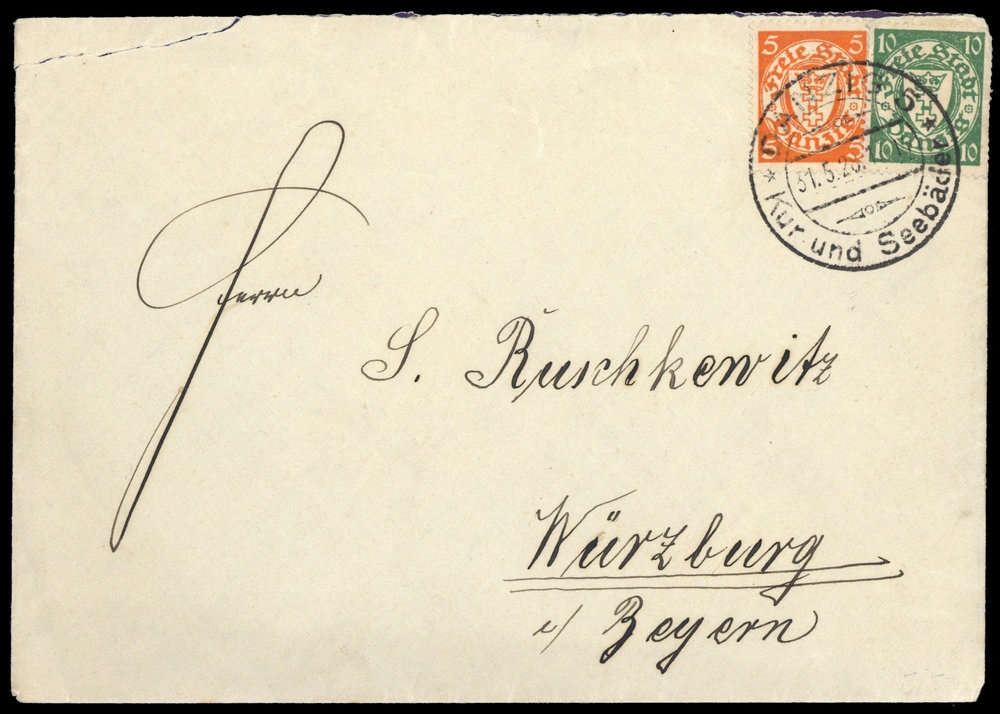 5 5
Freie Stadt
Danzig
5 5
10 10
Freie Stadt
Danzig
10 10
* DANZIG 5 *
31.5.26.
Kur- und Seebäder
Herrn
S. Ruschkewitz
Würzburg
i/ Beyern